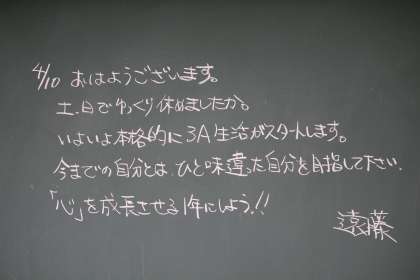 4/10 おはようございます。
土、日でゆっくり休めましたか。
いよいよ本格的に3A生活がスタートします。
今までの自分とは、ひと味違った自分を目指して下さい.
「心」を成長させる1年にしよう!!
遠藤